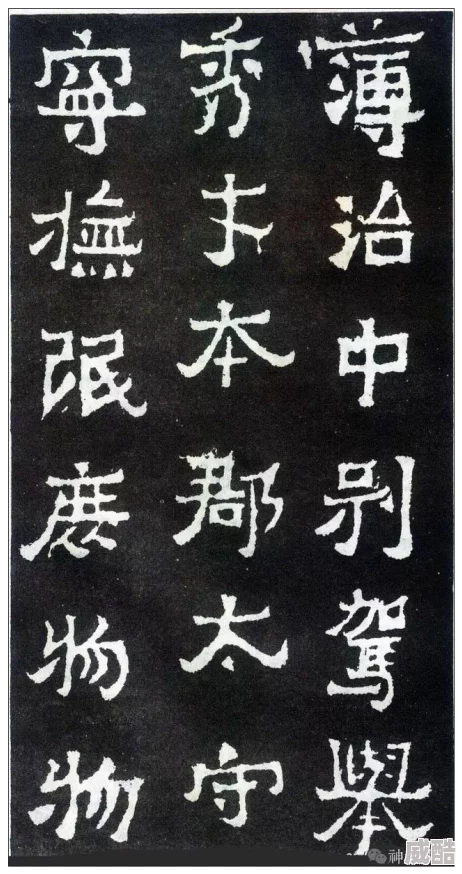 薄治中别駕舉
秀才本郡太守
寧撫氓庶物物
神
威酷